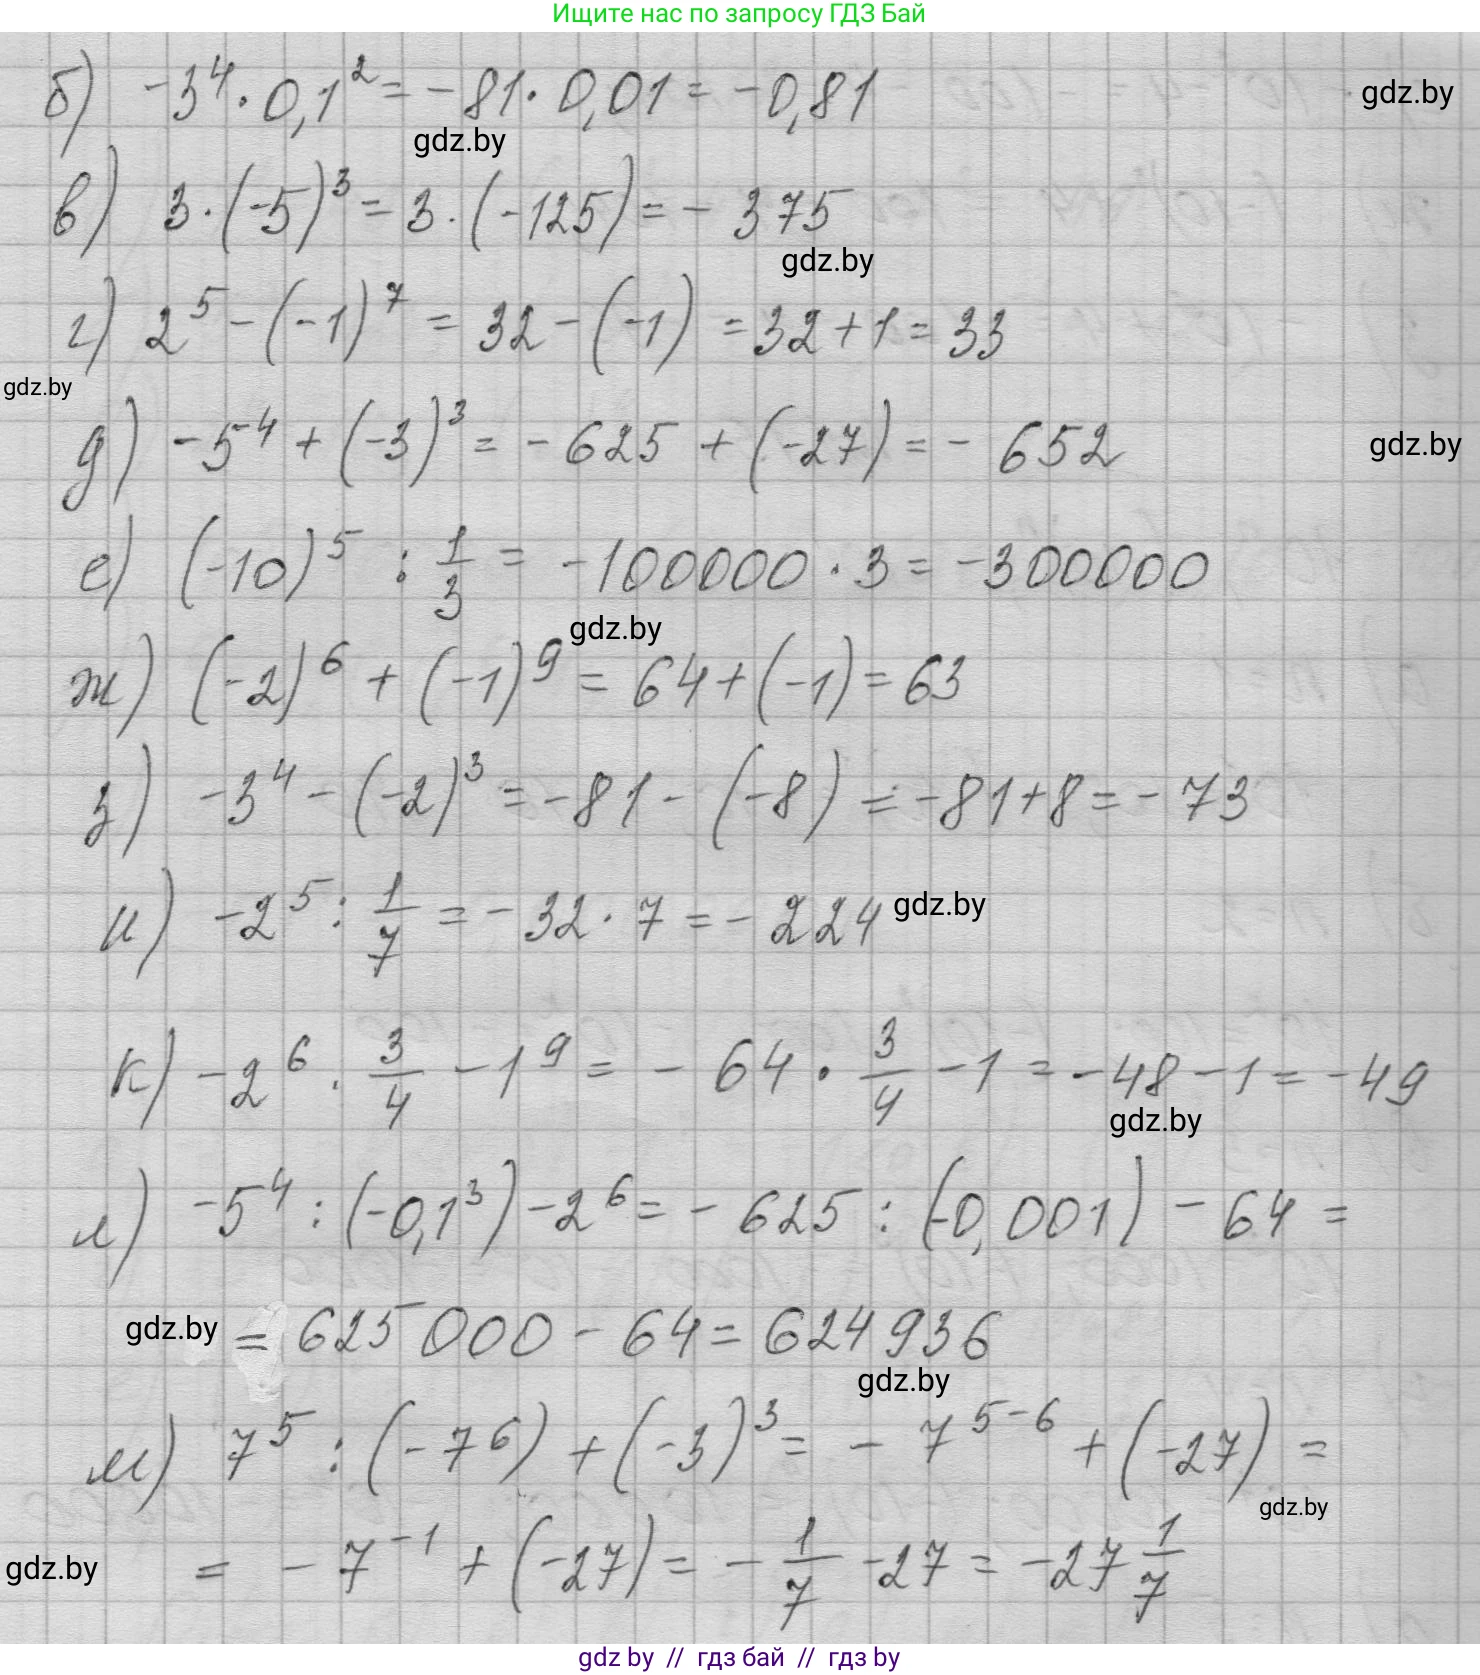 Ищите нас по запросу ГДЗ Бай
б) -3⁴ · 0,1² = -81 · 0,01 = -0,81
gdz.by
gdz.by
в) 3 · (-5)³ = 3 · (-125) = - 375
gdz.by
г) 2⁵ - (-1)⁷ = 32 - (-1) = 32 + 1 = 33
gdz.by
д) -5⁴ + (-3)³ = - 625 + (-27) = - 652
gdz.by
е) (-10)⁵ : 1/3 = -100000 · 3 = -300000
gdz.by
ж) (-2)⁶ + (-1)⁹ = 64 + (-1) = 63
з) -3⁴ - (-2)³ = -81 - (-8) = -81 + 8 = - 73
и) -2⁵ : 1/7 = - 32 · 7 = - 224
gdz.by
к) -2⁶ · 3/4 - 1⁹ = - 64 · 3/4 - 1 = -48 - 1 = -49
gdz.by
л) -5⁴ : (-0,1³) - 2⁶ = - 625 : (-0,001) - 64 =
gdz.by
= 625 000 - 64 = 624 936
gdz.by
м) 7⁵ : (-7⁶) + (-3)³ = - 7⁵⁻⁶ + (-27) =
gdz.by
gdz.by
= - 7⁻¹ + (-27) = - 1/7 - 27 = -27 1/7
gdz by // гдз бай // гдз by